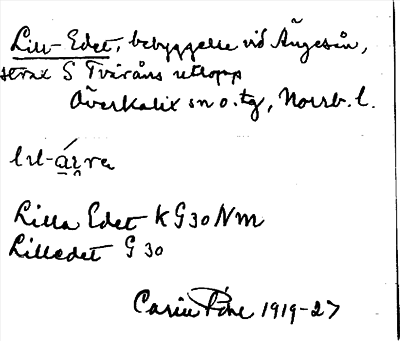 Lill-Edet, bebyggelse vid Ängesån,
strax S Tväråns utlopp
Överkalix sn o. tg, Norrb. l.
Lilla Edet K G30 NM
Lilledet G 30
Carin Pihl 1919-27